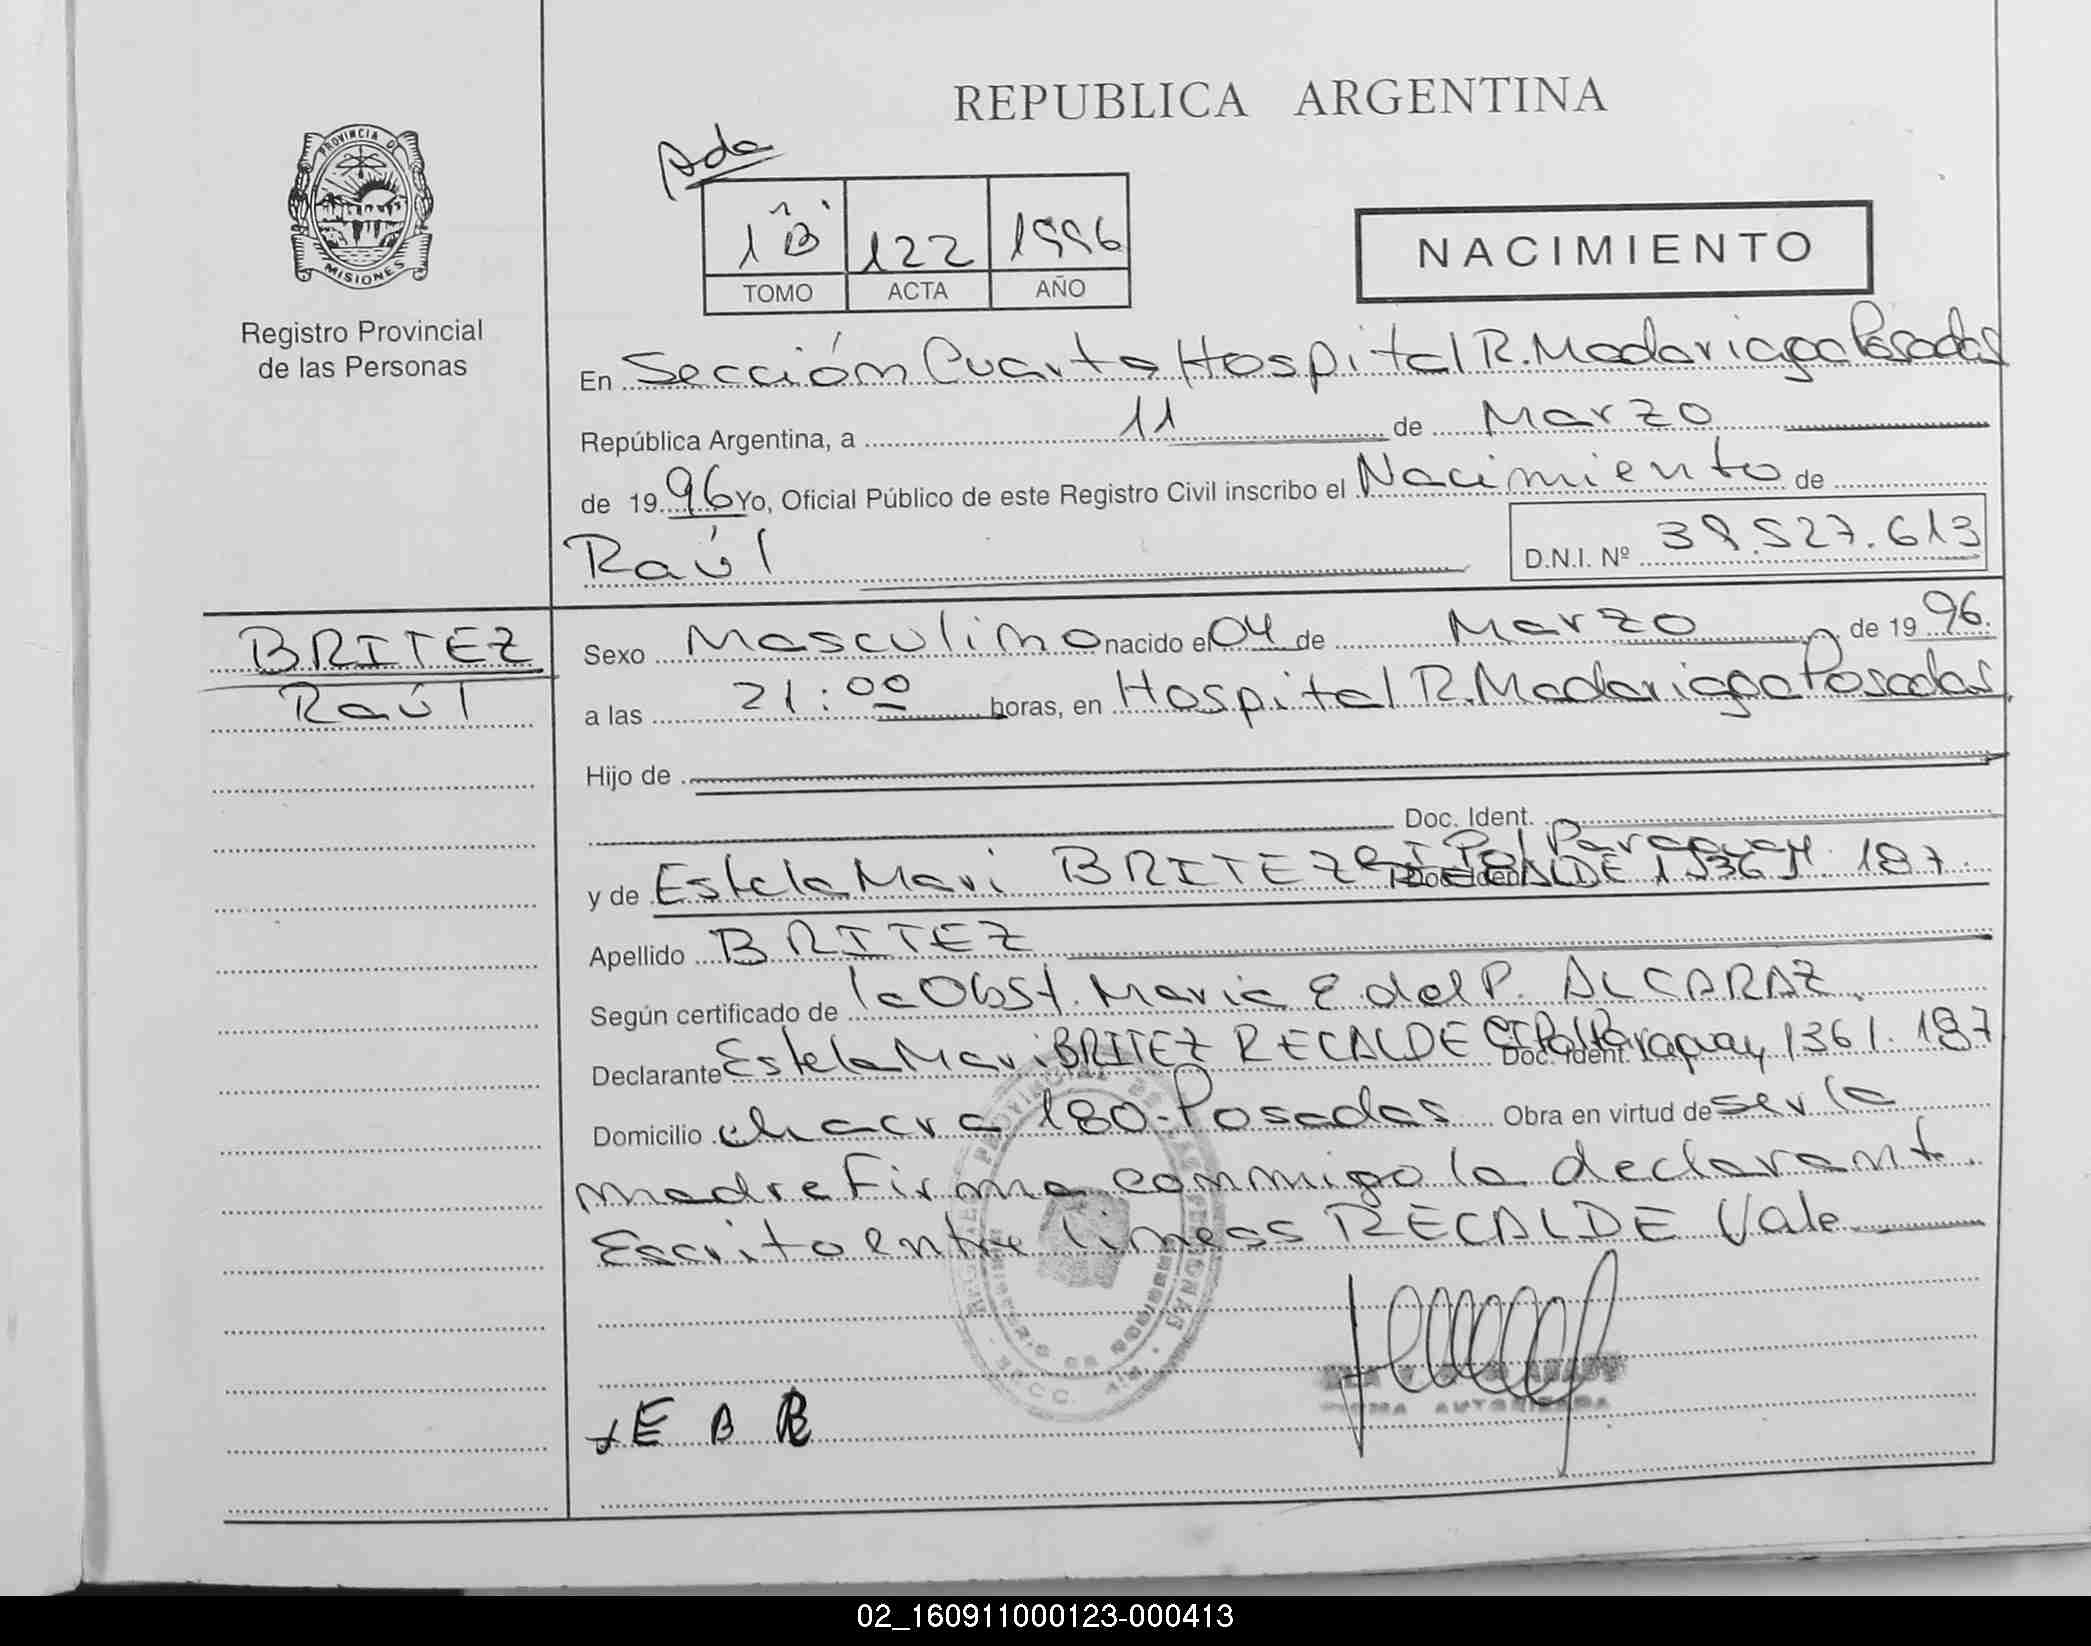 REPUBLICA ARGENTINA
PROVINCIA DE
MISIONES
Registro Provincial
de las Personas
Ada
1 B 122 1996
TOMO ACTA AÑO
NACIMIENTO
En Sección Cuarta Hospital R. Madariaga Posadas
República Argentina, a 11 de Marzo
de 1996 Yo, Oficial Público de este Registro Civil inscribo el Nacimiento de
Raúl
D.N.I. Nº 39.527.613
BRITEZ
Raúl
Sexo Masculino nacido el 04 de Marzo de 1996.
a las 21:00 horas, en Hospital R. Madariaga Posadas.
Hijo de
Doc. Ident.
y de Estela Mari BRITEZ RECALDE CI Pol Paraguay 1361.187.
Apellido BRITEZ
Según certificado de la Obst. Maria E. del P. ALCARAZ.
Declarante Estela Mari BRITEZ RECALDE Doc. Ident. CI Pol Paraguay 1361.187
Domicilio chacra 180-Posadas Obra en virtud de ser la
madre Firma conmigo la declarant.
Escrito entre lineas RECALDE Vale
FIRMA AUTORIZADA
E B R
02_160911000123-000413